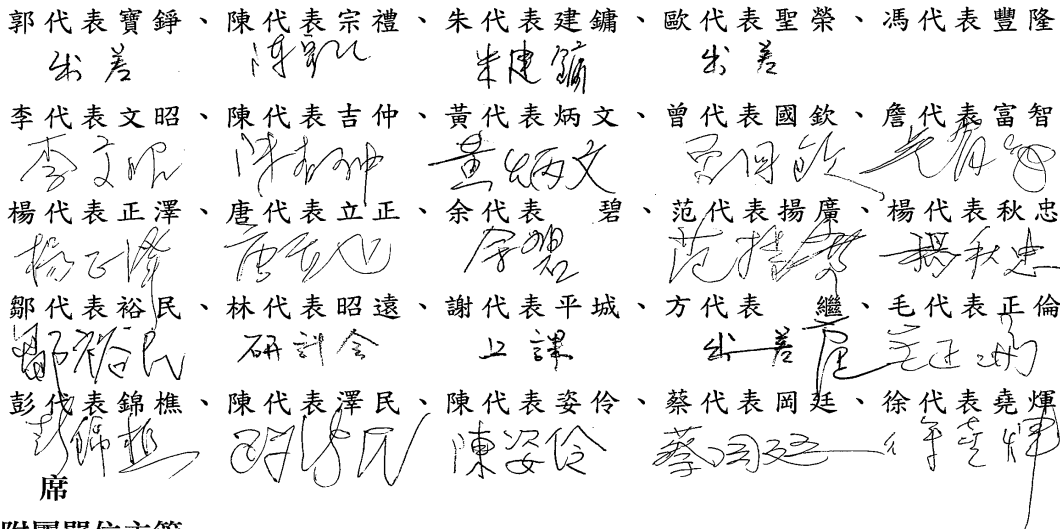 郭代表寶錚、陳代表宗禮、朱代表建鏞、歐代表聖榮、馮代表豐隆
出差 陳宗礼 朱建鏞 出差
李代表文昭、陳代表吉仲、黃代表炳文、曾代表國欽、詹代表富智
李文昭 陳吉仲 黃炳文 曾國欽
楊代表正澤、唐代表立正、余代表　碧、范代表揚廣、楊代表秋忠
楊正澤 唐立正 余碧 范揚廣 楊秋忠
鄒代表裕民、林代表昭遠、謝代表平城、方代表　繼、毛代表正倫
鄒裕民 研討会 上課 出差 毛正倫
彭代表錦樵、陳代表澤民、陳代表姿伶、蔡代表岡廷、徐代表堯煇
彭錦樵 陳澤民 陳姿伶 蔡岡廷 徐堯煇
席
附屬單位主管